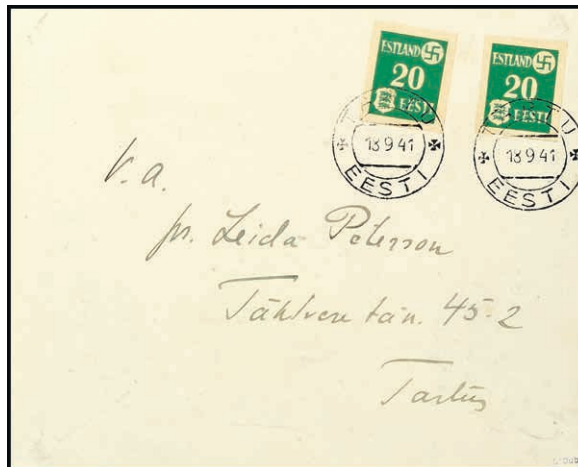 ESTLAND
20
EESTI
ESTLAND
20
EESTI
TARTU
18 9 41
EESTI
TARTU
18 9 41
EESTI
V. a.
pr. Leida Peterson
Tähtvere tän. 45-2
Tartus